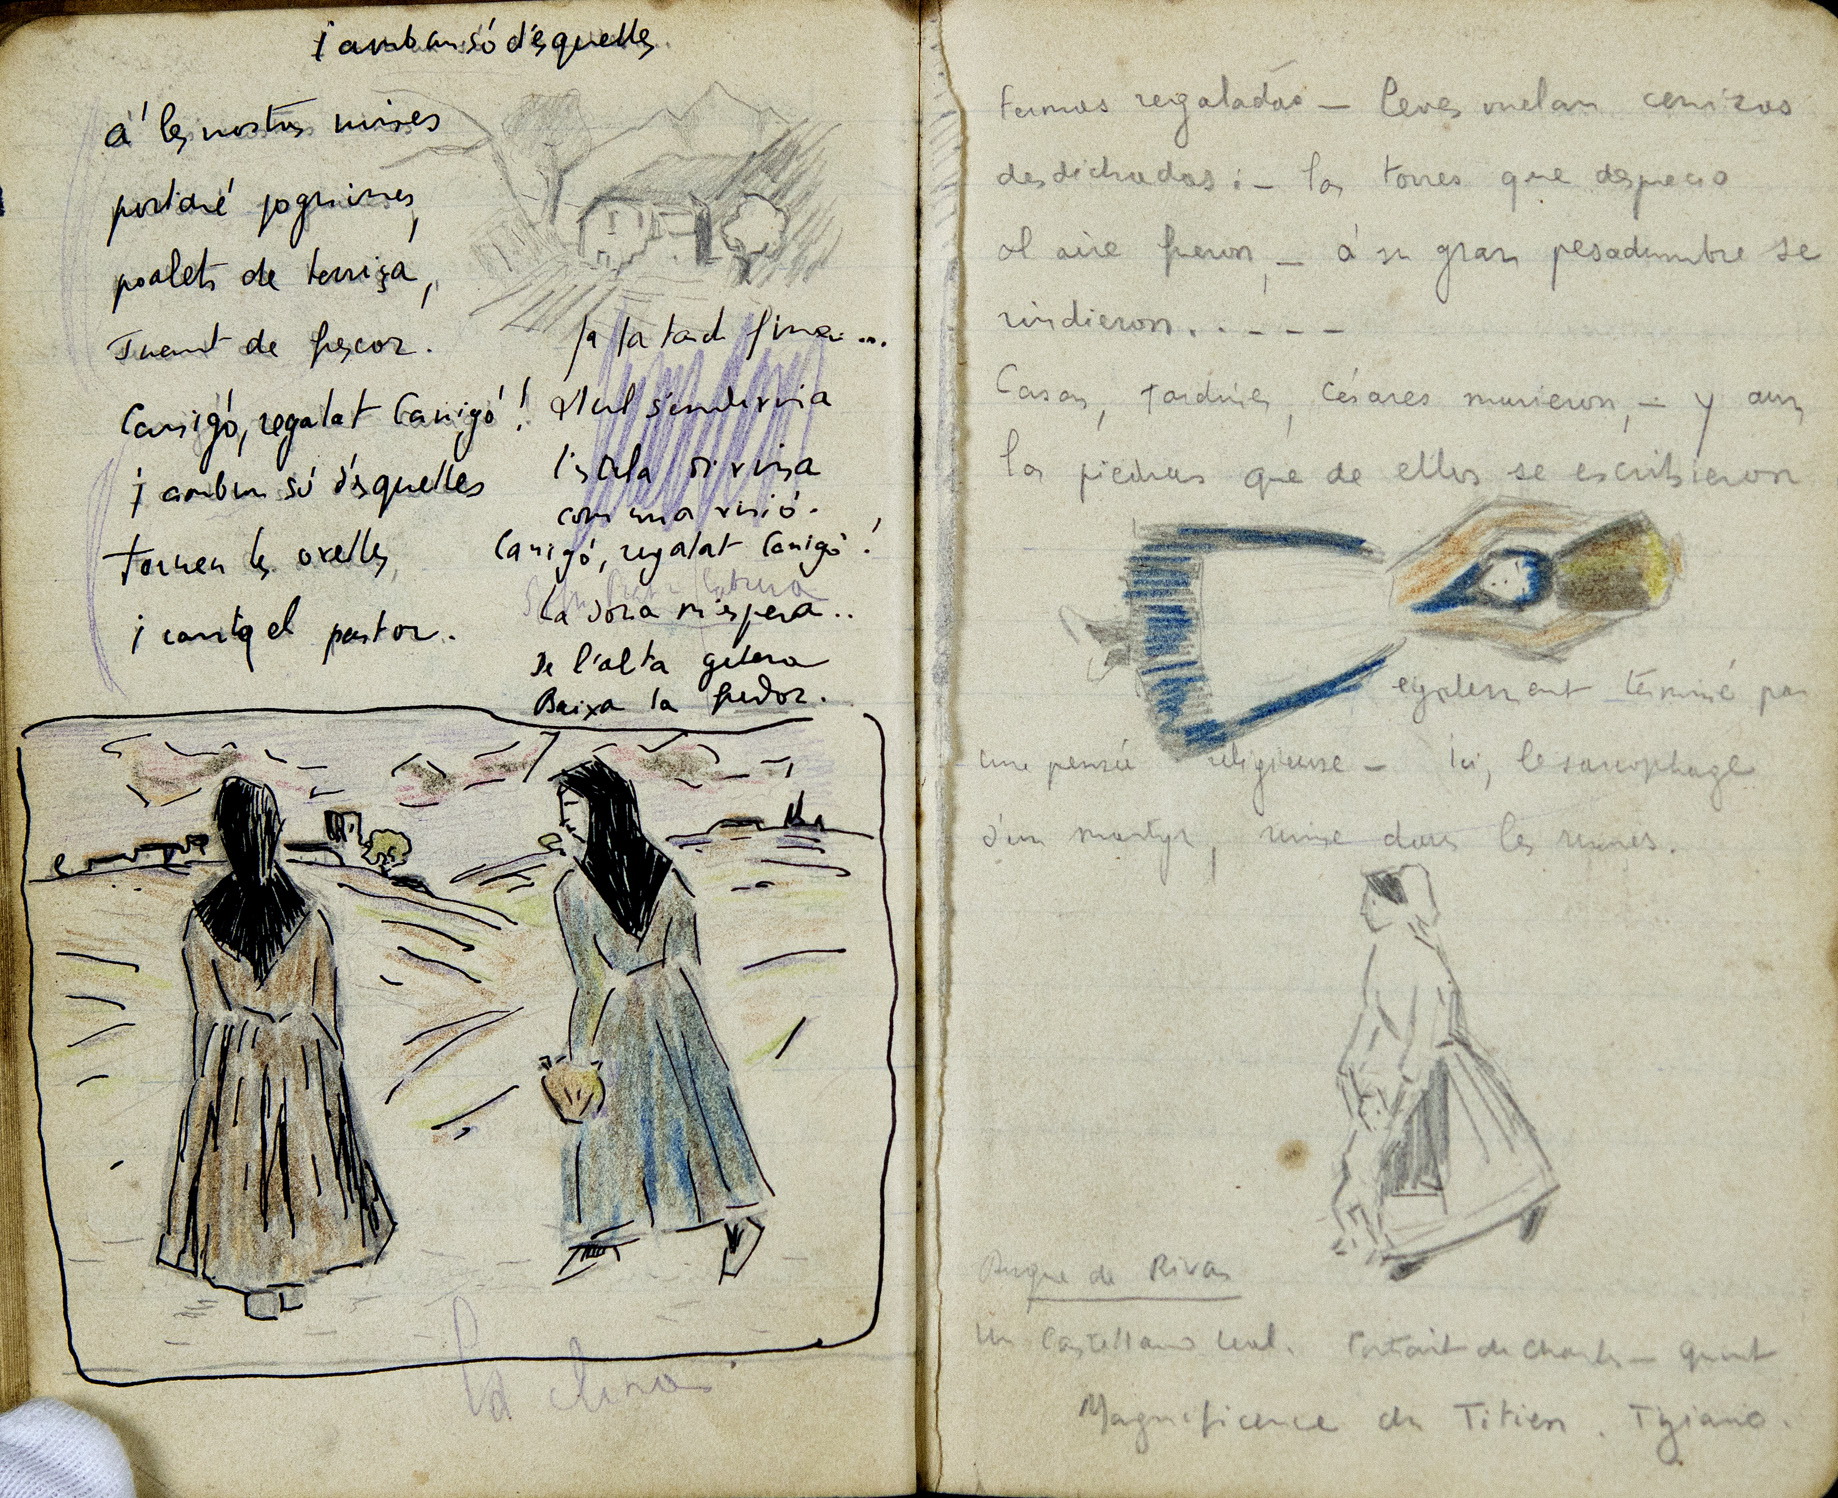 i amb un só d'esquelles
á les nostres nines
portaré joguines,
poalets de terrissa,
Juant de pescor.
Canigó, regalat Canigó!
i amb un só d'esquelles
tornen les ovelles,
i canta el pastor.
Ja la tard fina...
l'estela divina
com una visió.
Canigó, regalat Canigó!
La Dona m'espera..
De l'alta gelera
Baixa la fredor.
Termas regaladas — leves vuelan cenizas
desdichadas: — las torres que desprecio
al aire fueron, — á su gran pesadumbre se
rindieron. . - - -
Casas, Jardines, Césares murieron, — y aun
las piedras que de ellos se escribieron
également terminé par
une pensée religieuse — Ici, le sarcophage
d'un martyr, ruine dans les ruines.
Duque de Rivas
Un Castellano leal. Portrait de Charles-quint
Magnificence du Titien. Tiziano.